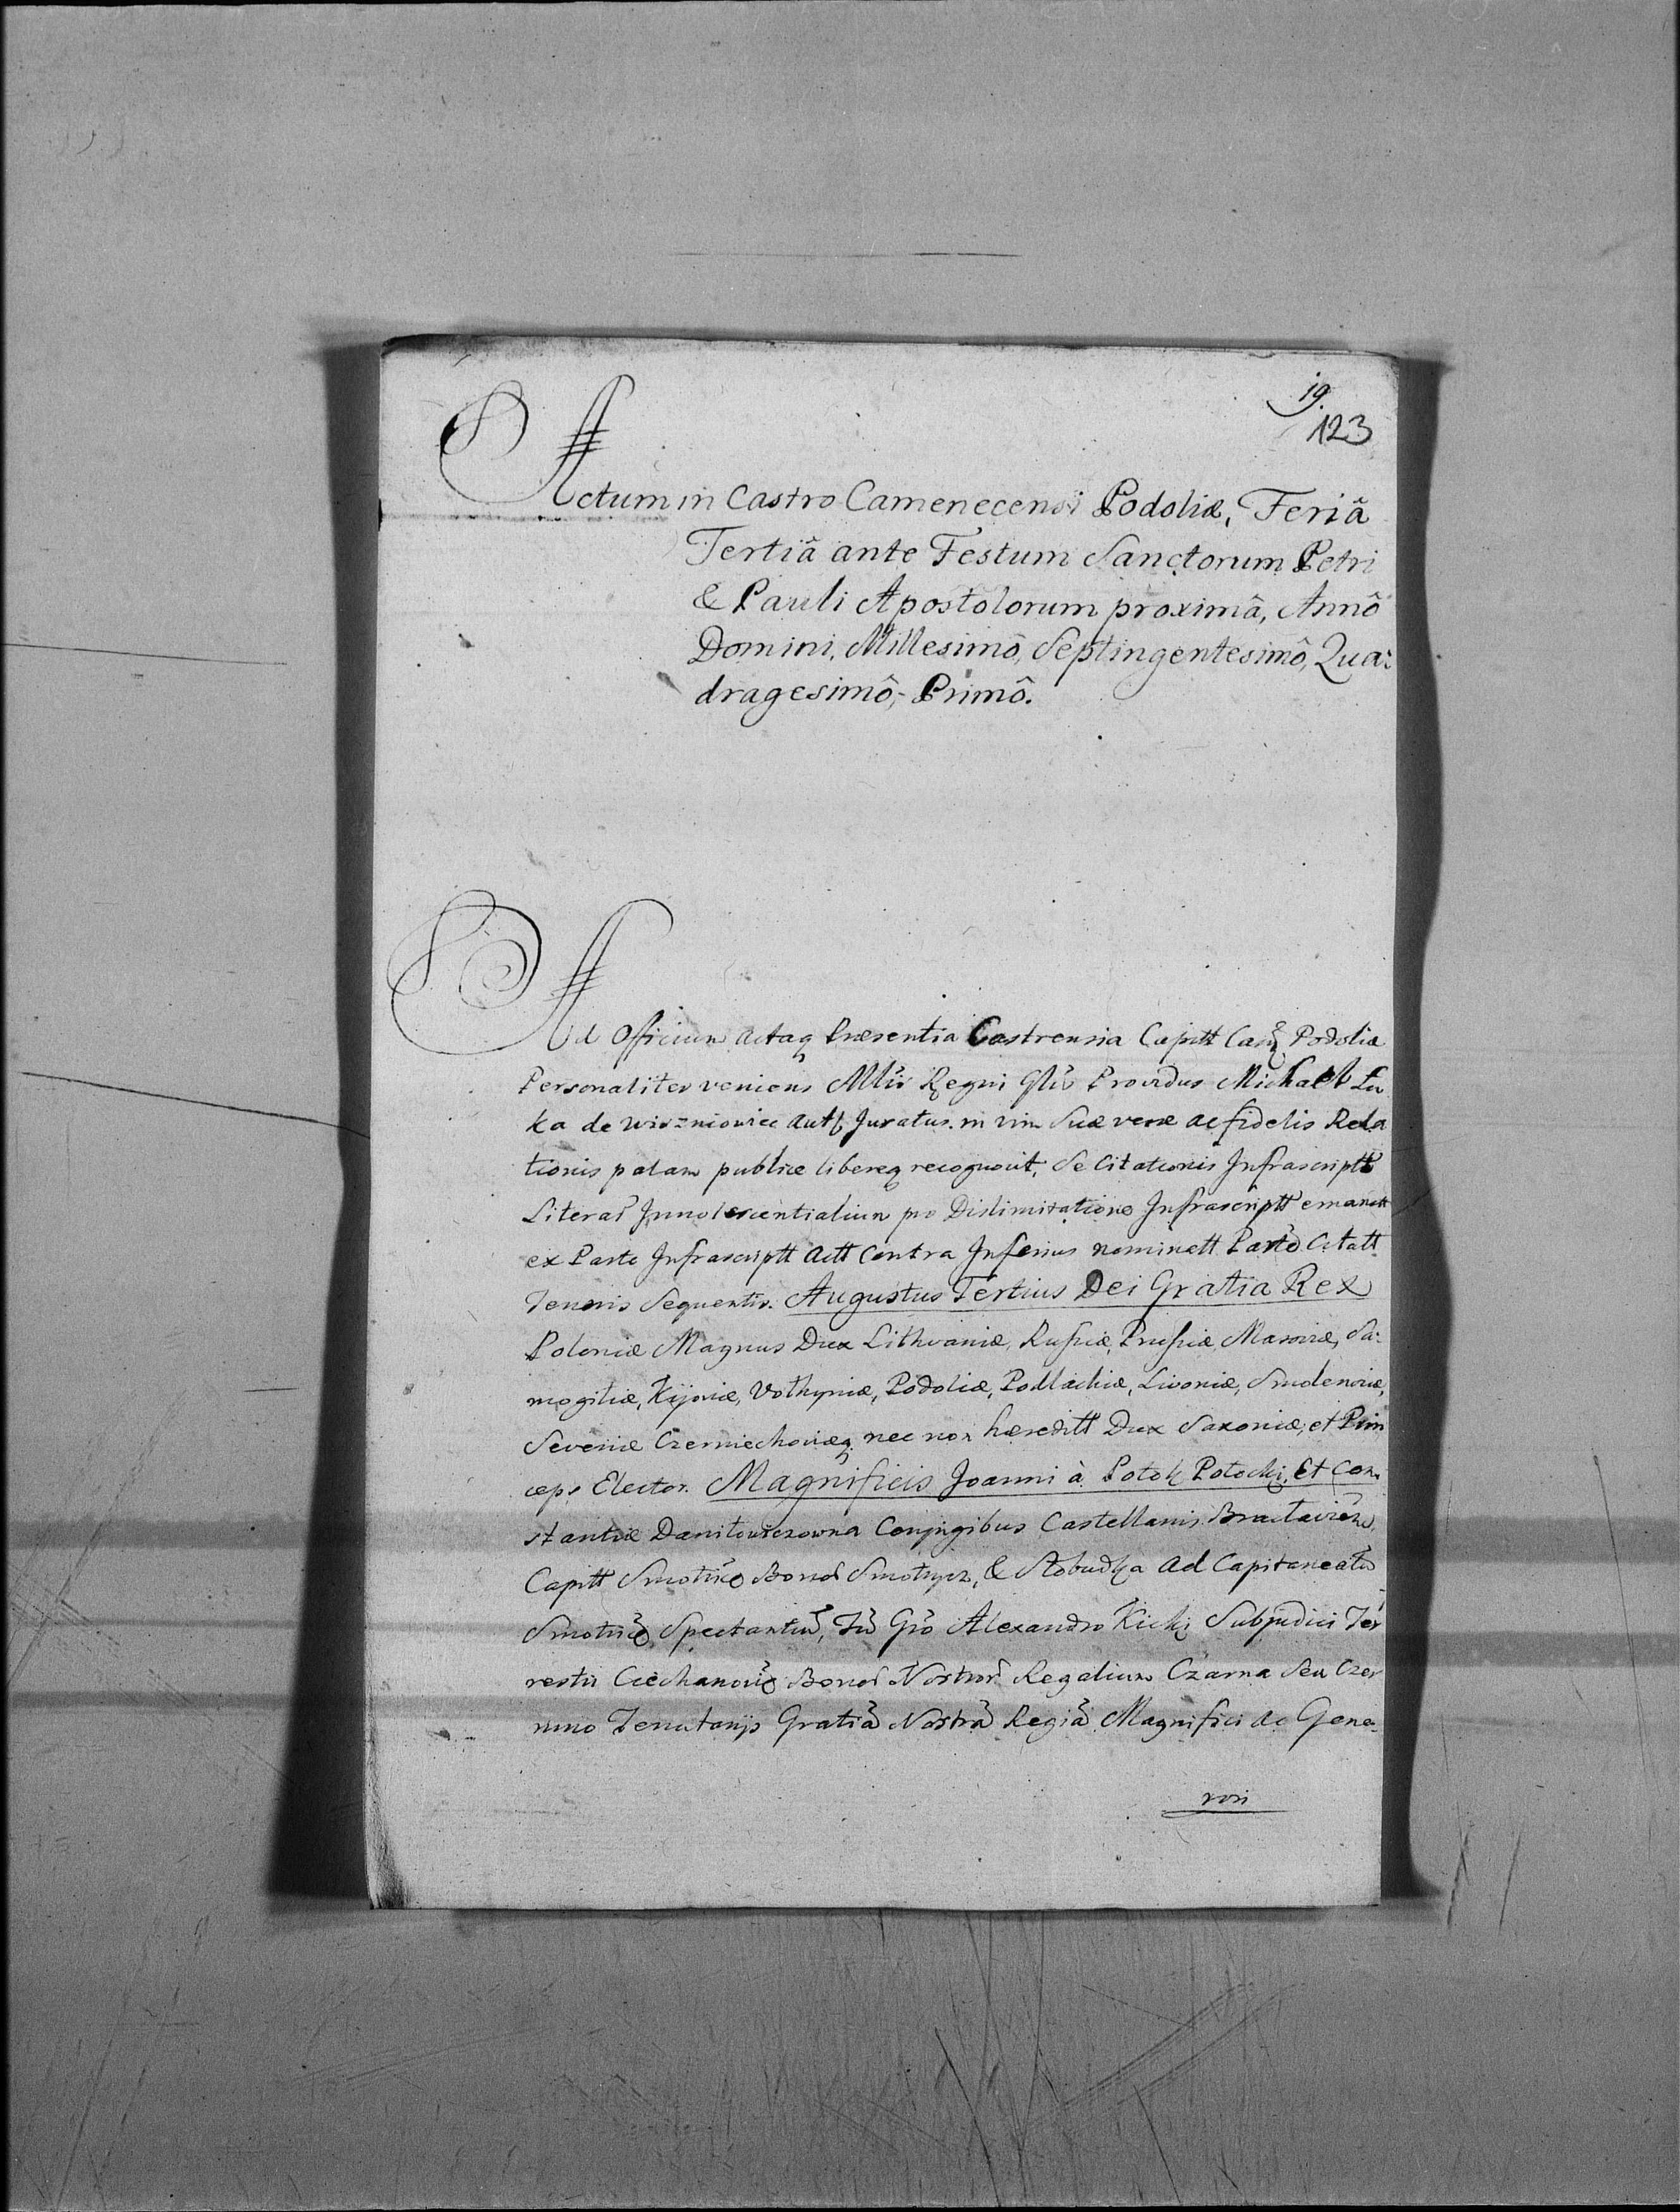 19.
123
Actum in Castro Camenecensi Podoliæ, Feriâ
Tertiâ ante Festum Sanctorum Petri
& Pauli Apostolorum proximâ, Annô
Domini, Millesimô, Septingentesimô, Qua:
dragesimô, Primô.
Ad Officium Actaq Præsentia Castrensia Capitt Podoliæ
Personaliter veniens Mlis Regni Providus Michael Lu
ka de Wiszniowiec Juratus in vim Suæ veræ ac fidelis Rela
tionis palam publice libereq recognovit, Se Citationis Infrascriptt
Literar Innotescentialium pro Dislimitatione Infrascriptt emanatt
ex Parte Infrascriptt Actt Contra Inferius nominatt Citatt
Tenoris Sequentis. Augustus Tertius Dei Gratia Rex
Poloniæ Magnus Dux Lithvaniæ, Rußiæ, Prußiæ, Masoviæ, Sa:
mogitiæ, Kijoviæ, Volhyniæ, Podoliæ, Podlachiæ, Livoniæ, Smolensciæ,
Severiæ Czerniechoviæq nec non hæreditt Dux Saxoniæ, et Prin
ceps Elector. Magnificis Joanni à Potok Potocki, Et Con
stantiæ Daniłowiczowna Conjugibus Castellanis
Capitt Bonor Smotrycz, & Słobudka Ad Capitaneatu
Spectantiu, Alexandro Kicki Subjudici Ter
restri Bonor Nostror Regalium Czarna Seu Czer
Tenutarijs Gratiâ Nostrâ Regiâ Magnifici ac Gene
rosi